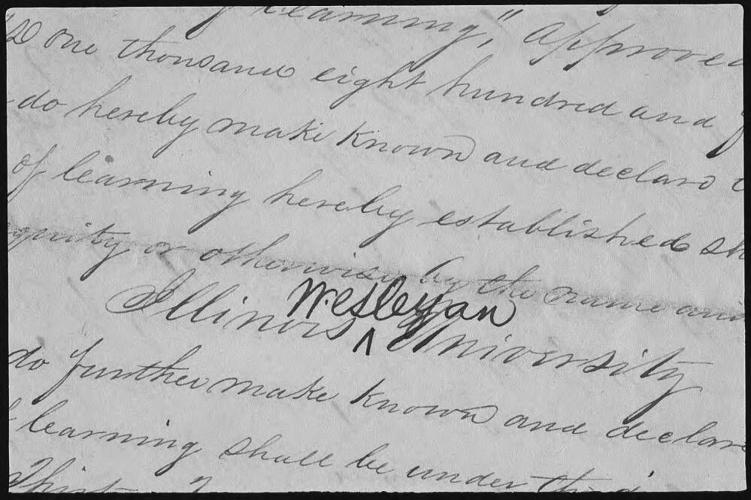 of learning," approved
one thousand eight hundred and
do hereby make known and declare
of learning hereby established sh
quity or otherwise by the name and
Wesleyan
Illinois ^ University
do further make known and declare
learning shall be under the